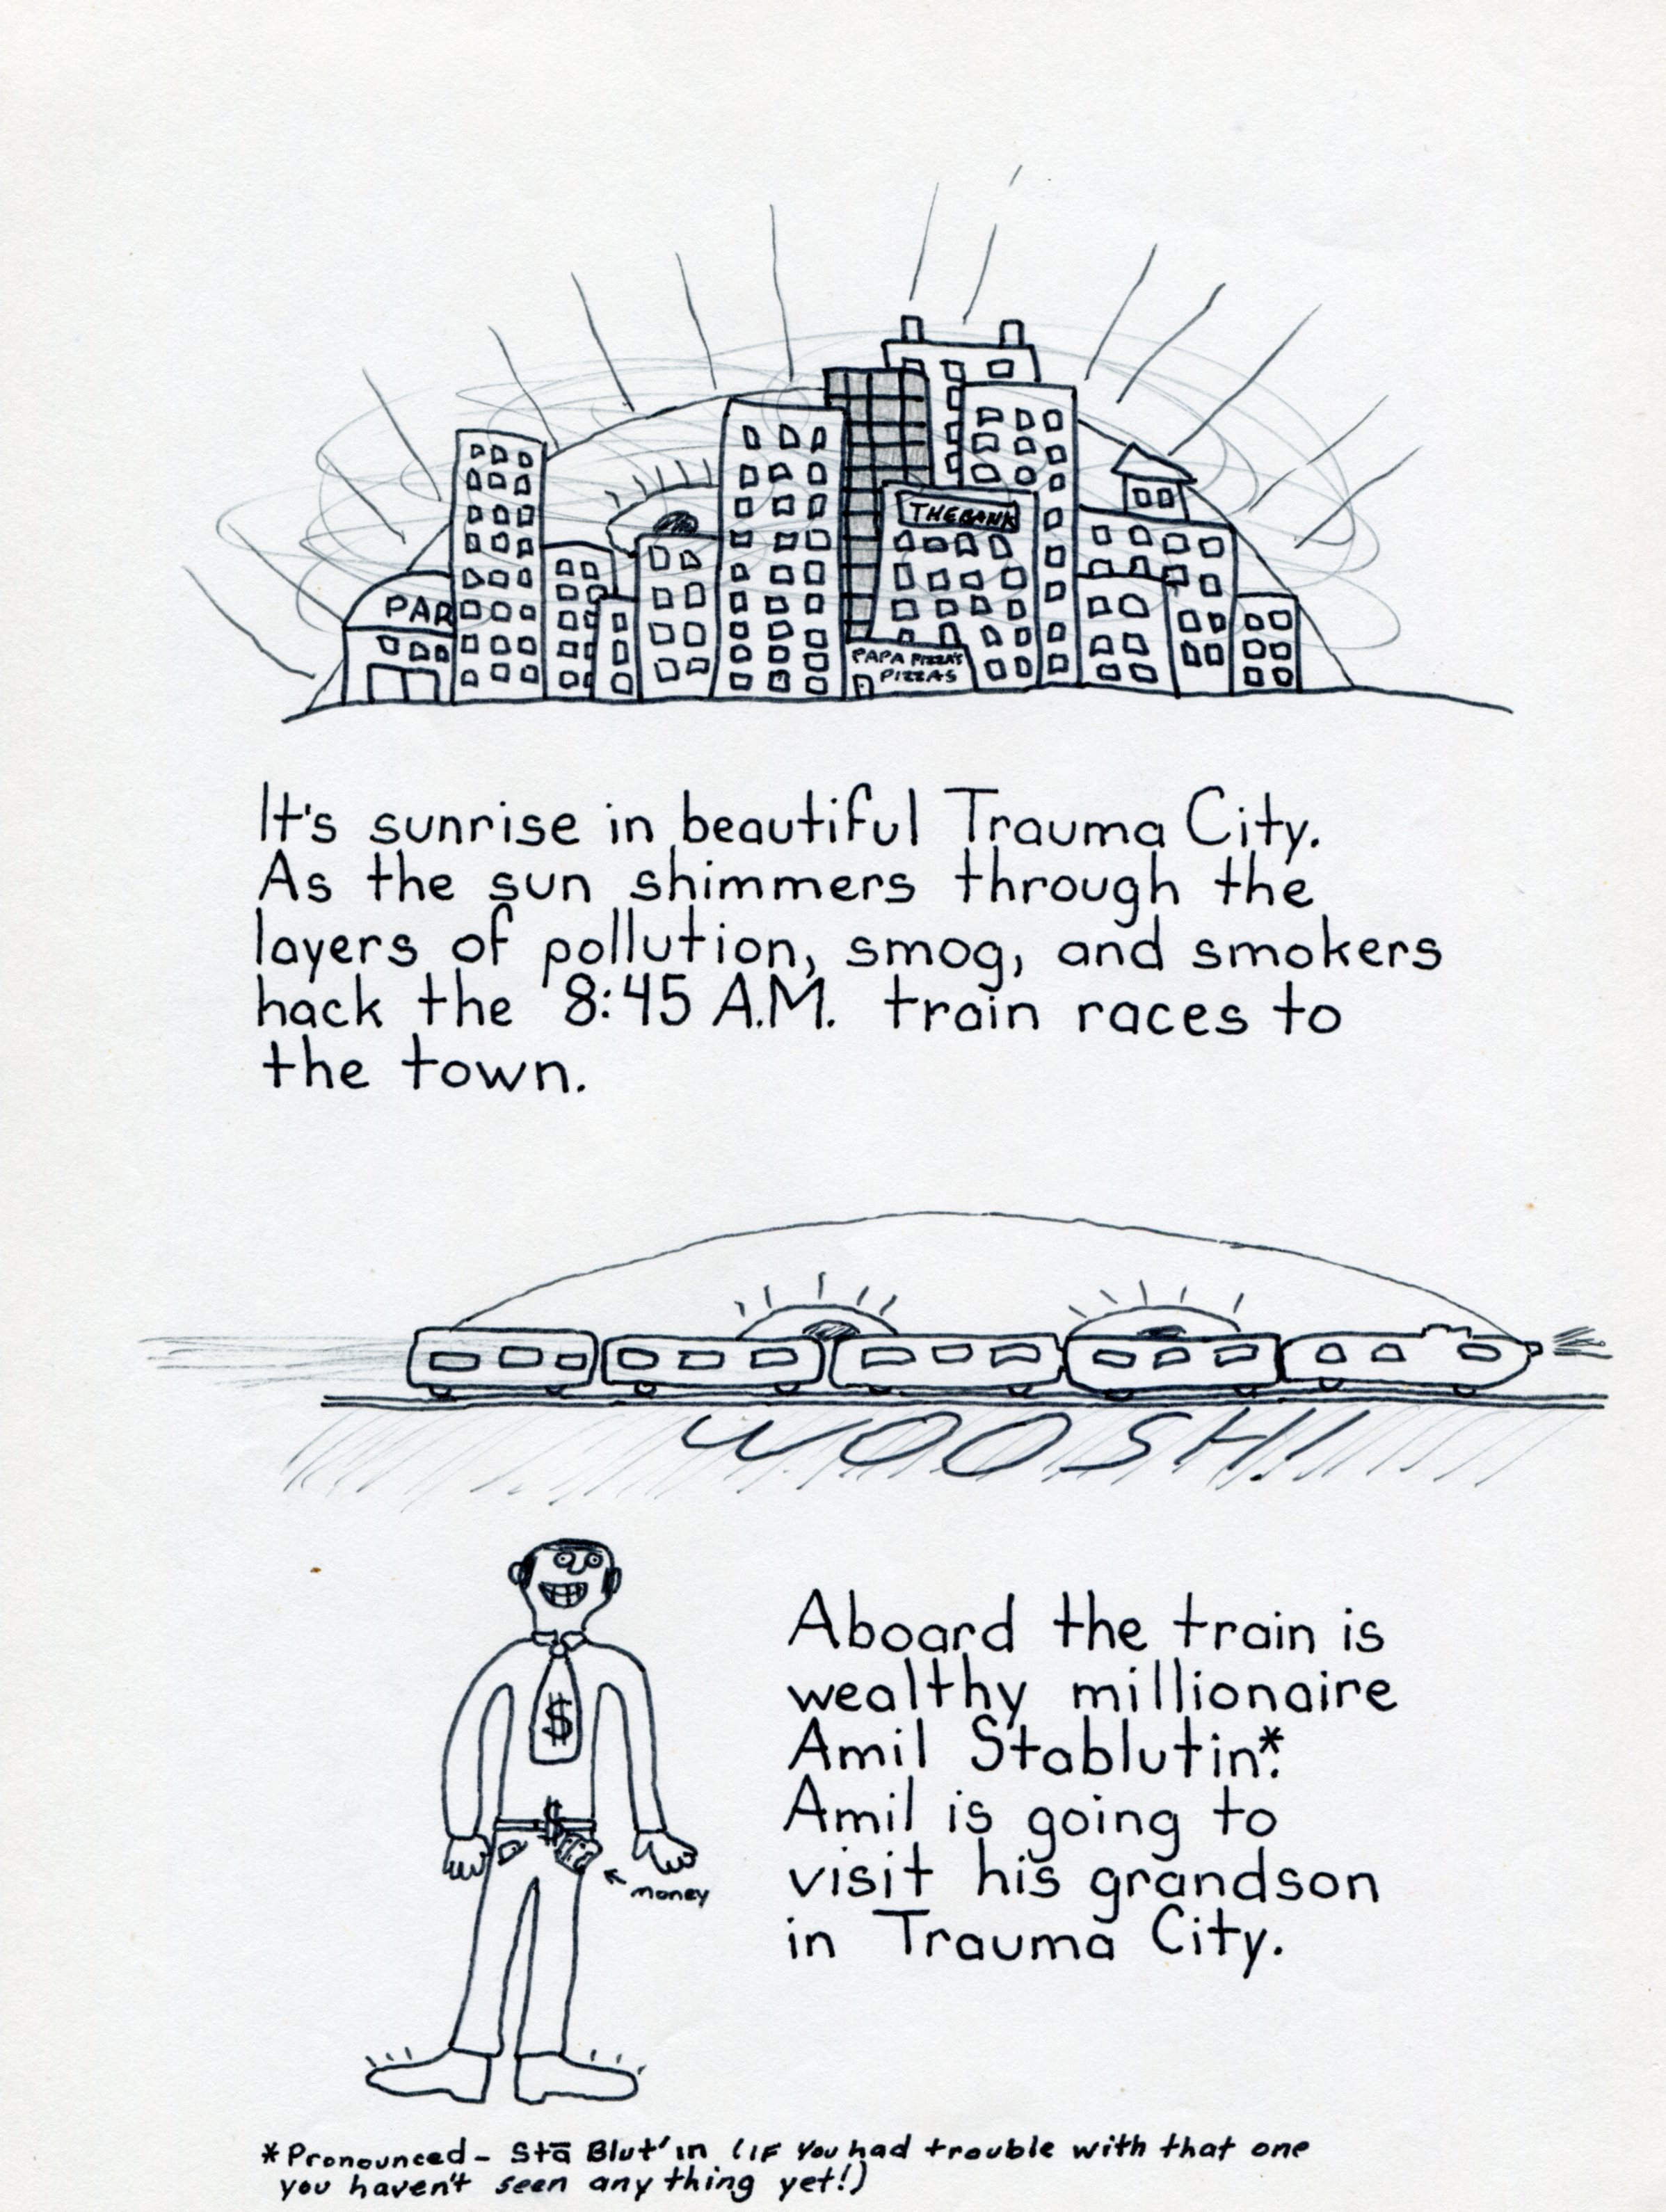 THE BANK
PAR
PAPA PIZZA'S
PIZZAS
It's sunrise in beautiful Trauma City.
As the sun shimmers through the
layers of pollution, smog, and smokers
hack the 8:45 A.M. train races to
the town.
WOOSH!
$
$
money
Aboard the train is
wealthy millionaire
Amil Stablutin*.
Amil is going to
visit his grandson
in Trauma City.
*Pronounced - Stā Blut' in (IF you had trouble with that one
you haven't seen any thing yet!)